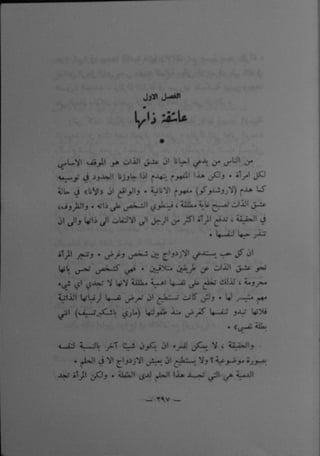 الفصل الاول
عاشقة ذاتها
*
من الناس من يدعي احيانا ان عشق الذات هو الموقف الاساسي
لكل امرأة ٠ ولكن هذا المفهوم يتهدم اذا جاوزنا الحدود في توسيعه
كما هدم (لاروشفوكو) مفهوم الانانية ٠ والواقع ان «الأنا» في حالة
عشق الذات تصبح غاية مطلقة ، فينطوي الشخص على ذاته ٠ والظروف،
في الحقيقة ، تدفع المرأة اكثر من الرجل الى الالتفات الى ذاتها والى ان
تنفر حبها لنفسها ٠
ان كل حب يستدعي الازدواج بين شخص وغرض ٠ وتنجر المرأة
نحو عشق الذات عن طريقين متلاقيين ٠ فهي كشخص تحس بأنها
محرومة ، لذلك تخلع على نفسها اهمية مطلقة لانها لا تجدي اي شيء
مهم متيسر لها ٠ ولئن كانت تستطيع ان تعرض نفسها لرغباتها الذاتية
فلأنها تبدو لنفسها كغرض منذ طفولتها (ماري باشكيرتسيف) انني
بطلة نفسي» ٠
والحقيقة ، لا يمكن لفرد ان يكون شيئا آخر بالنسبة لنفسه
بصورة موضوعية ؟ ولا يستطيع ان يعيش الازدواج الا في الحلم ٠
الدمية هي التي تجسد هذا الحلم لدى الطفلة ٠ ولكن المرأة تجد
— ٣٩٧ —